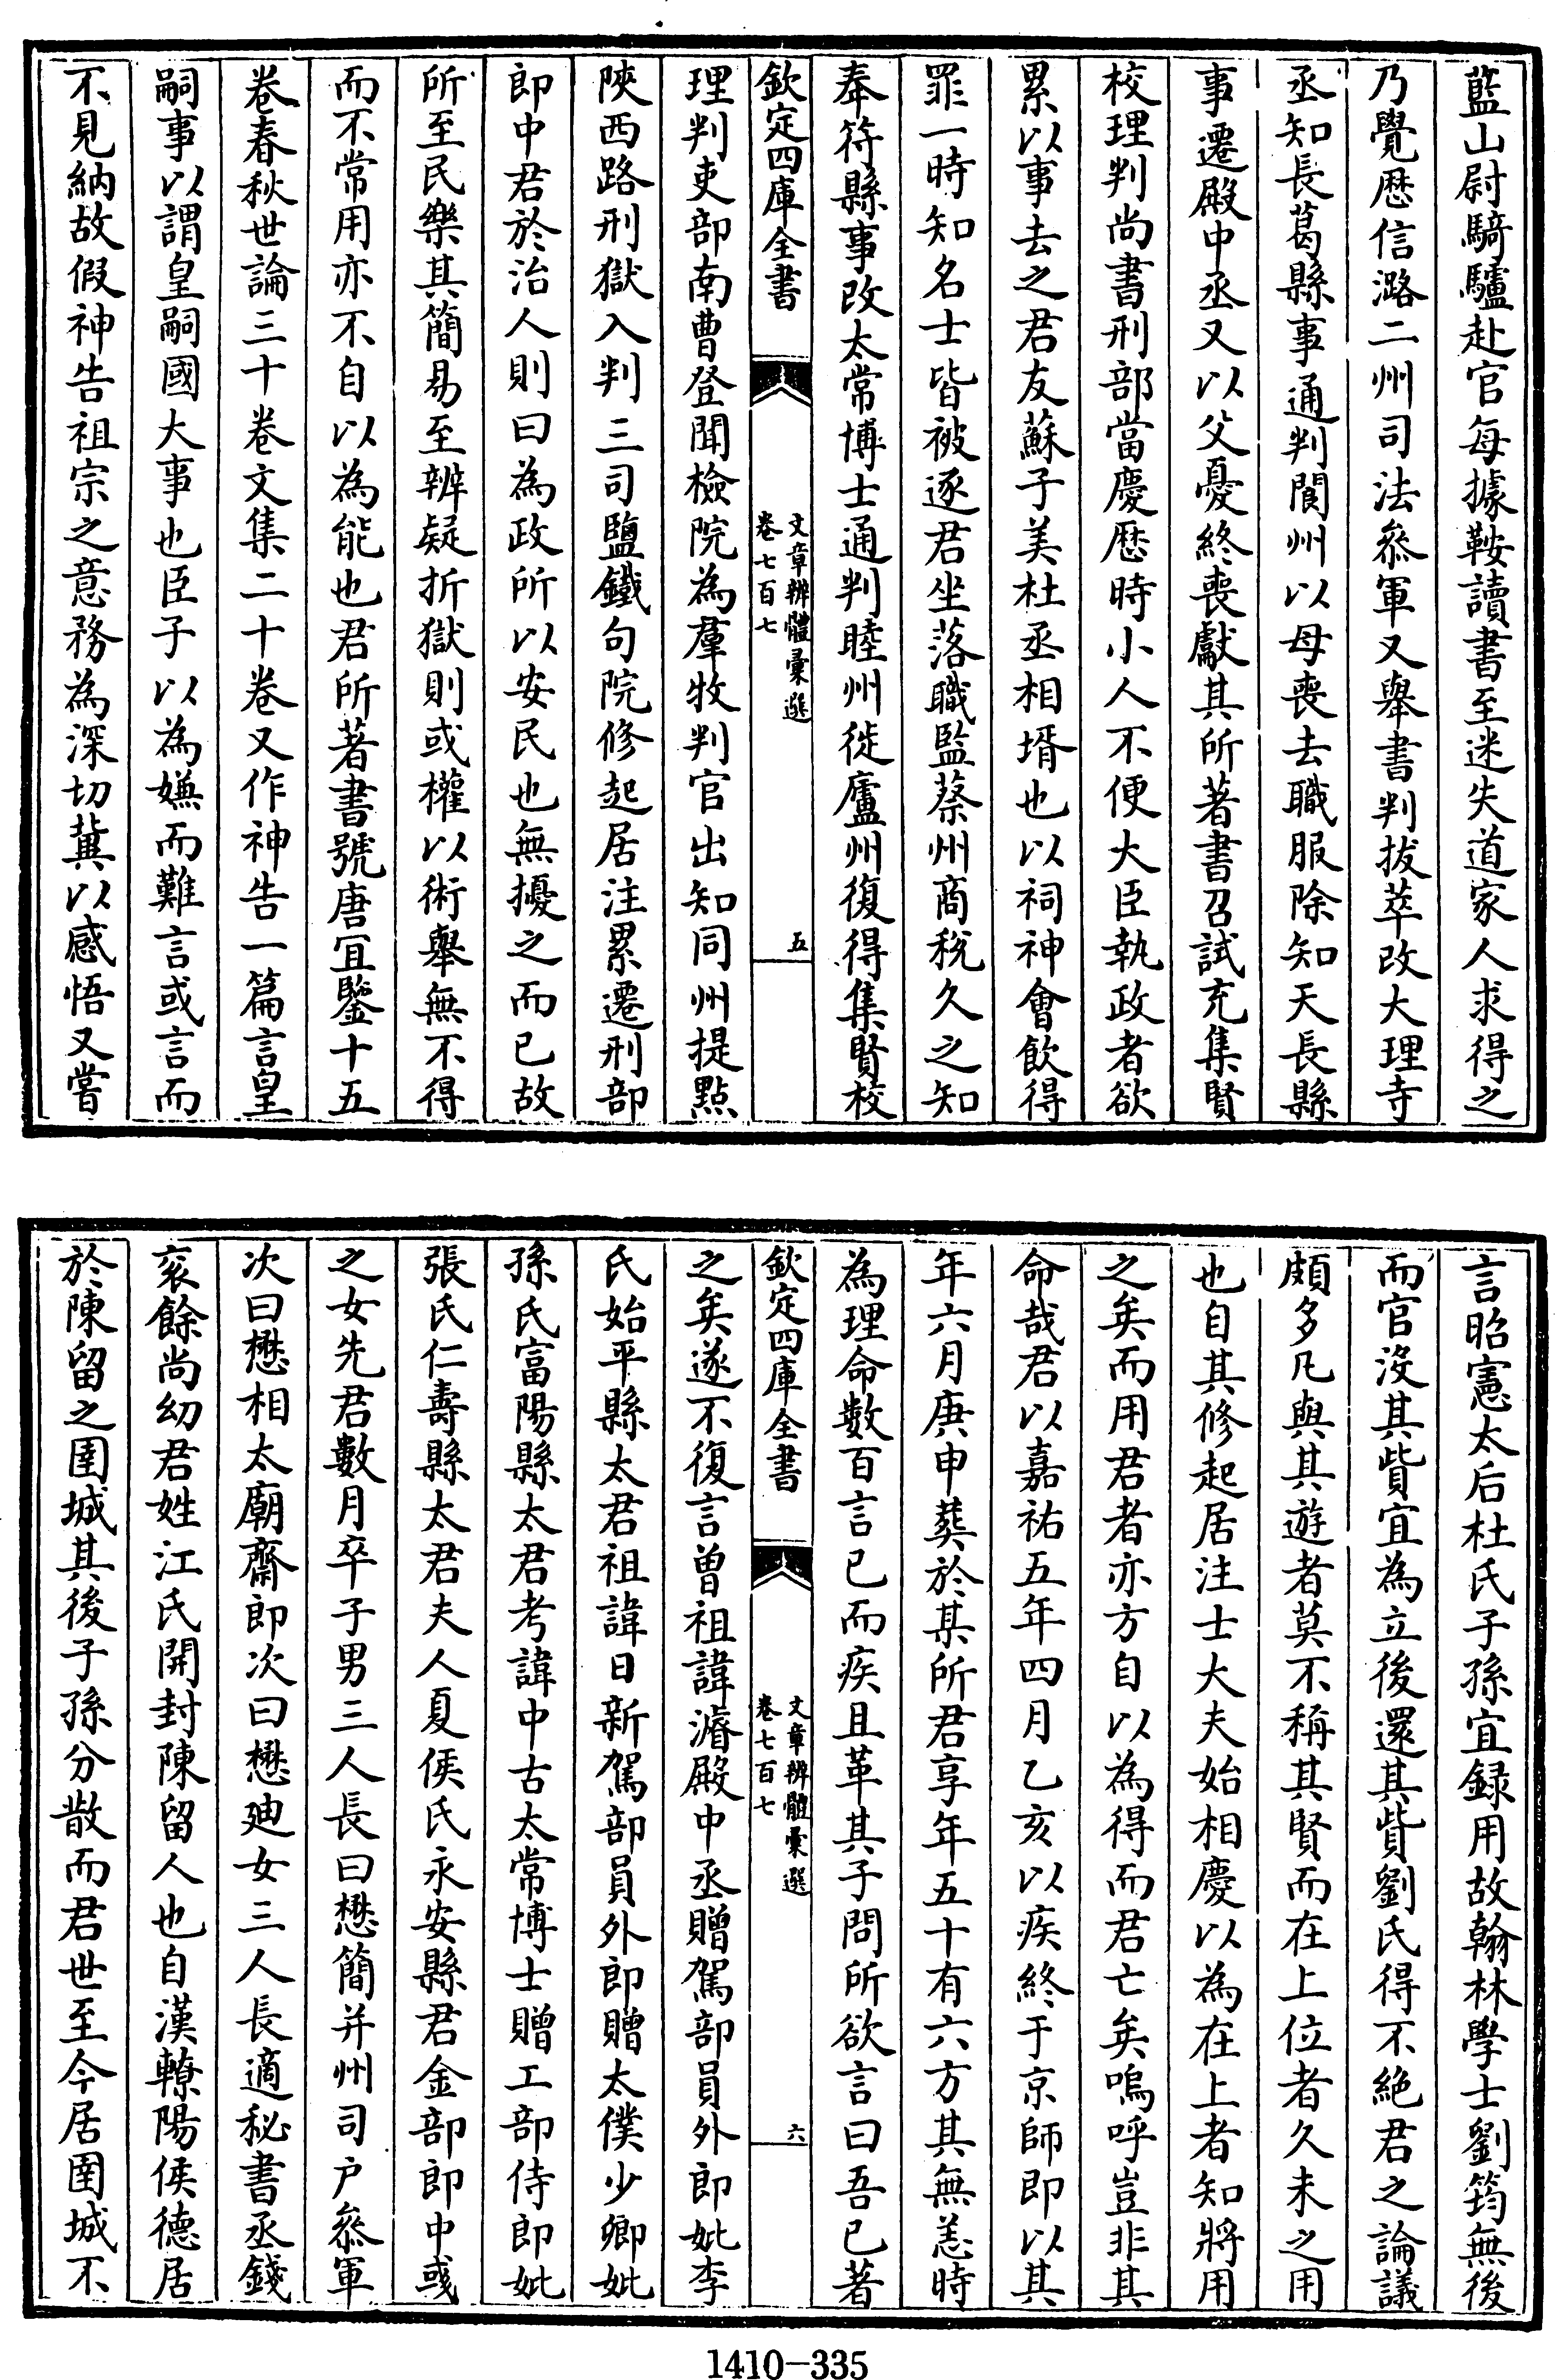 藍山尉騎驢赴官每據鞍讀書至迷失道家人求得之
乃覺歴信潞二州司法叅軍又舉書判拔萃改大理寺
丞知長葛縣事通判閬州以母喪去職服除知天長縣
事遷殿中丞又以父憂終喪獻其所著書召試充集賢
校理判尚書刑部當慶歴時小人不便大臣執政者欲
累以事去之君友蘇子美杜丞相壻也以祠神會飲得
罪一時知名士皆被逐君坐落職監蔡州商稅久之知
奉符縣事改太常博士通判睦州徙廬州復得集賢校
欽定四庫全書
文章辨體彚選
卷七百七
五
理判吏部南曹登聞檢院為羣牧判官出知同州提㸃
陜西路刑獄入判三司鹽鐵句院修起居注累遷刑部
郎中君於治人則曰為政所以安民也無擾之而已故
所至民樂其簡易至辨疑折獄則或權以術舉無不得
而不常用亦不自以為能也君所著書號唐宜鑒十五
卷春秋世論三十卷文集二十卷又作神告一篇言皇
嗣事以謂皇嗣國大事也臣子以為嫌而難言或言而
不見納故假神告祖宗之意務為深切冀以感悟又嘗
言昭憲太后杜氏子孫宜録用故翰林學士劉筠無後
而官沒其貲宜為立後還其貲劉氏得不絶君之論議
頗多凡與其遊者莫不稱其賢而在上位者久未之用
也自其修起居注士大夫始相慶以為在上者知將用
之矣而用君者亦方自以為得而君亡矣嗚呼豈非其
命哉君以嘉祐五年四月乙亥以疾終于京師即以其
年六月庚申葬於某所君享年五十有六方其無恙時
為理命數百言已而疾且革其子問所欲言曰吾已著
欽定四庫全書
文章辨體彚選
卷七百七
六
之矣遂不復言曽祖諱濬殿中丞贈駕部員外郎妣李
氏始平縣太君祖諱日新駕部員外郎贈太僕少卿妣
孫氏富陽縣太君考諱中古太常博士贈工部侍郎妣
張氏仁壽縣太君夫人夏侯氏永安縣君金部郎中彧
之女先君數月卒子男三人長曰懋簡并州司户叅軍
次曰懋相太廟齋郎次曰懋廸女三人長適秘書丞錢
衮餘尚幼君姓江氏開封陳留人也自漢轑陽侯德居
於陳留之圉城其後子孫分散而君世至今居圉城不
1410-335